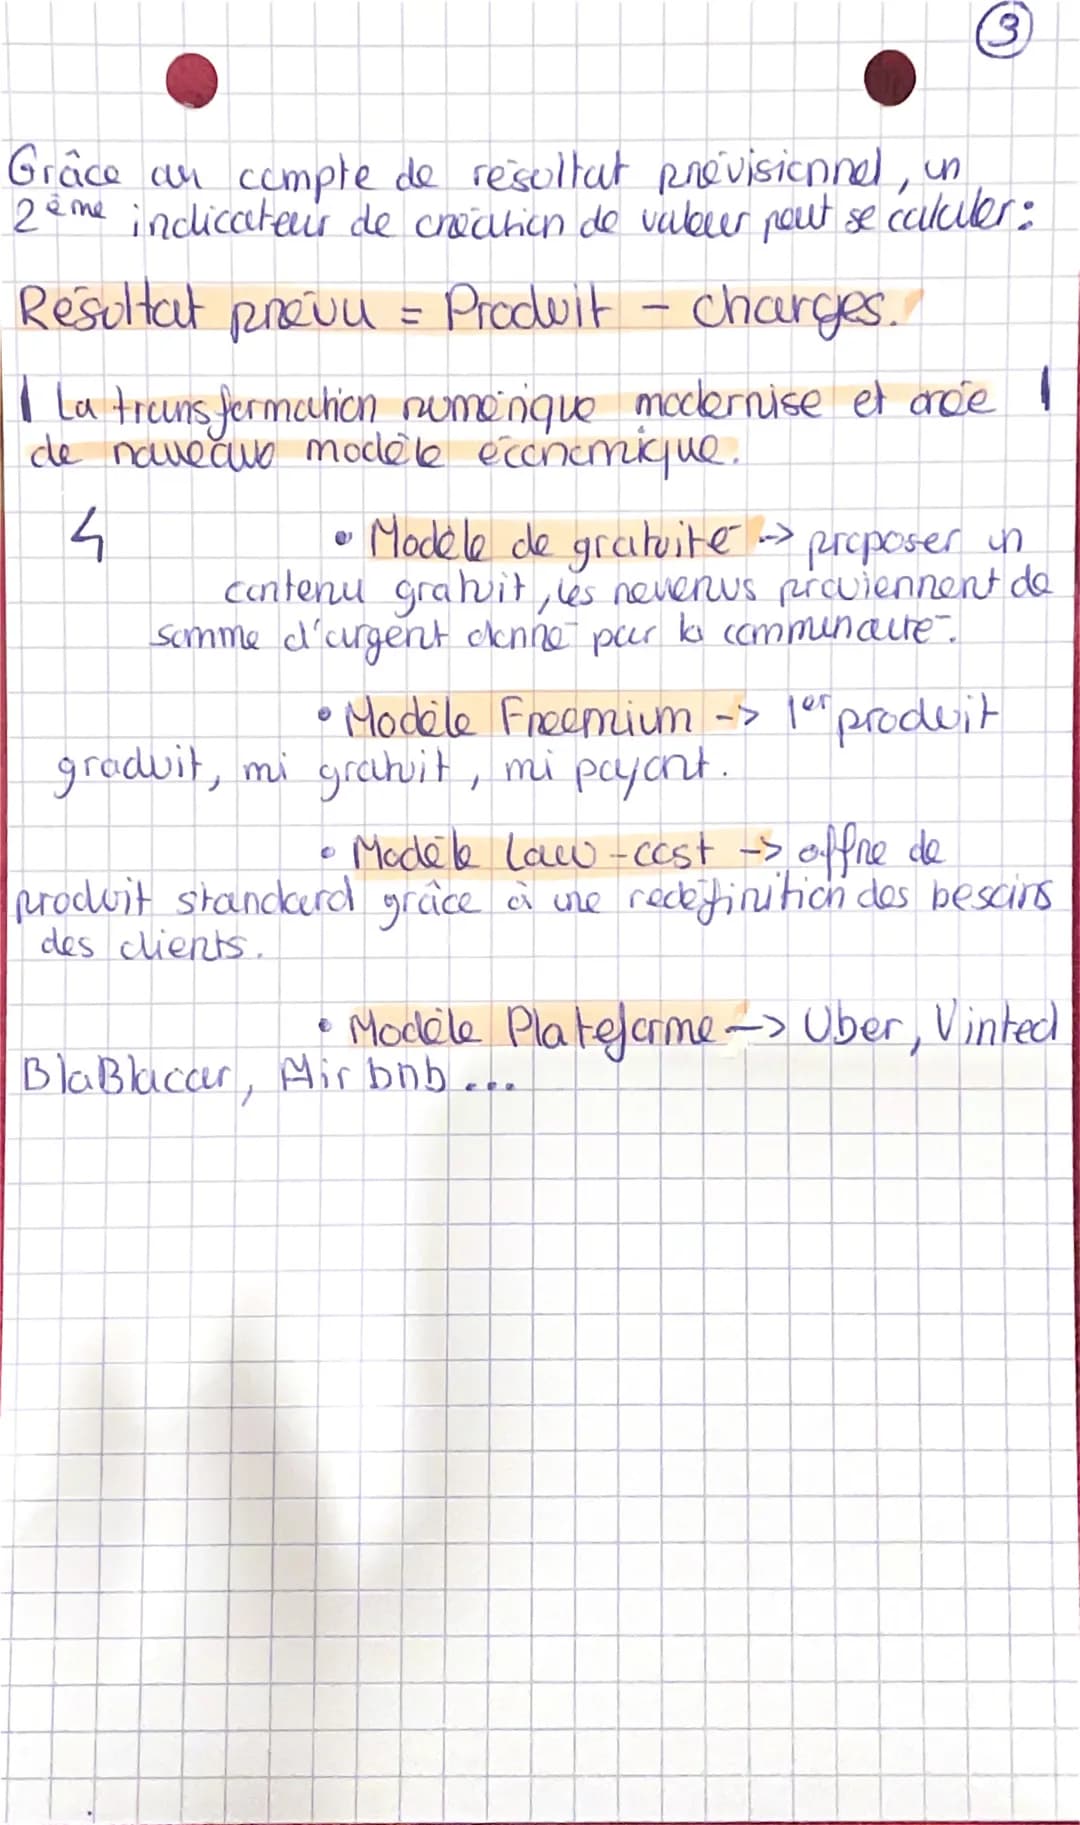 3
Grâce au compte de résultat prévisionnel, un
2ème indicateur de création de valeur peut se calculer :
Résultat prévu = Produit - charges.
La transformation numérique modernise et crée
de nouveaux modèle économique.
4
• Modèle de gratuité -> proposer un
contenu gratuit, les revenus proviennent de
somme d'argent donné par la communauté.
• Modèle Freemium -> 1er produit
graduit, mi gratuit, mi payant.
• Modèle Low-cost -> offre de
produit standard grâce à une redéfinition des besoins
des clients.
• Modèle Plateforme -> Uber, Vinted
BlaBlacar, Airbnb ...